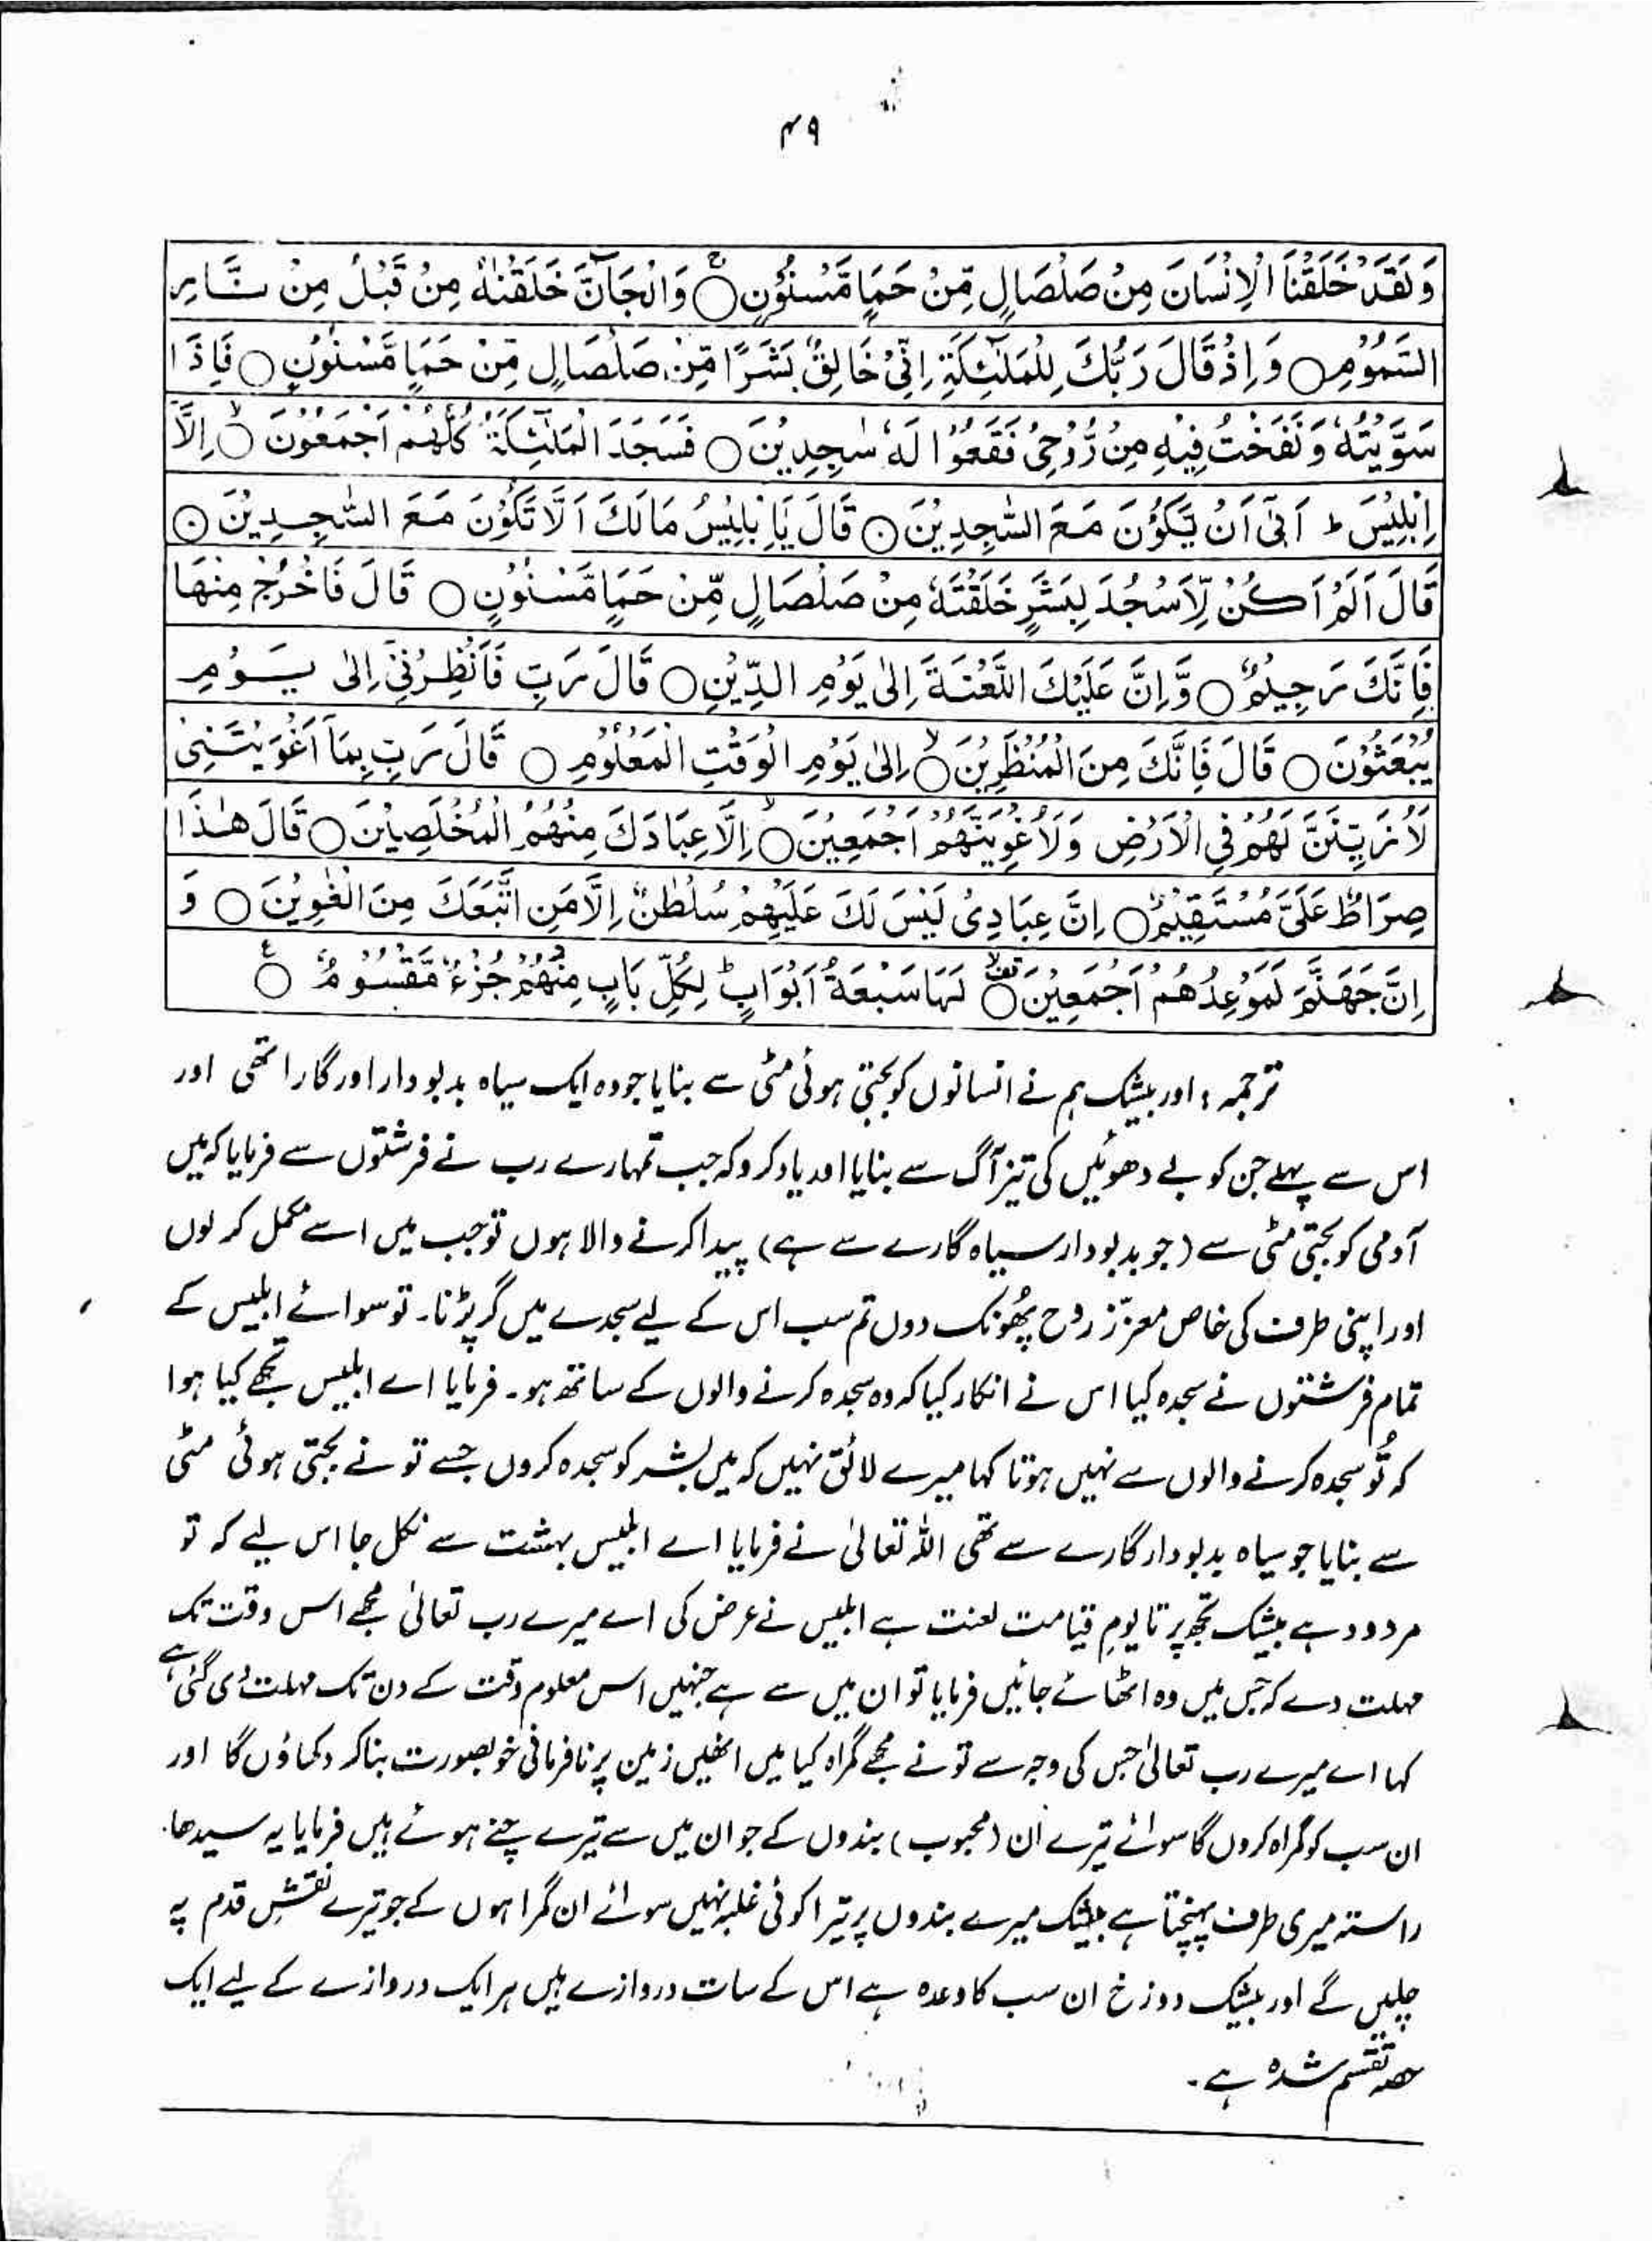 ۴۹
وَلَقَدْ خَلَقْنَا الْاِنْسَانَ مِنْ صَلْصَالٍ مِّنْ حَمَاٍ مَّسْنُوْنٍ ۝ وَالْجَآنَّ خَلَقْنٰهُ مِنْ قَبْلُ مِنْ نَّارِ
السَّمُوْمِ ۝ وَاِذْ قَالَ رَبُّكَ لِلْمَلٰٓئِكَةِ اِنِّيْ خَالِقٌ بَشَرًا مِّنْ صَلْصَالٍ مِّنْ حَمَاٍ مَّسْنُوْنٍ ۝ فَاِذَا
سَوَّيْتُهٗ وَنَفَخْتُ فِيْهِ مِنْ رُّوْحِيْ فَقَعُوْا لَهٗ سٰجِدِيْنَ ۝ فَسَجَدَ الْمَلٰٓئِكَةُ كُلُّهُمْ اَجْمَعُوْنَ ۝ اِلَّآ
اِبْلِيْسَ ط اَبٰٓى اَنْ يَّكُوْنَ مَعَ السّٰجِدِيْنَ ۝ قَالَ يٰٓاِبْلِيْسُ مَالَكَ اَلَّا تَكُوْنَ مَعَ السّٰجِدِيْنَ ۝
قَالَ اَلَمْ اَكُنْ لِّاَسْجُدَ لِبَشَرٍ خَلَقْتَهٗ مِنْ صَلْصَالٍ مِّنْ حَمَاٍ مَّسْنُوْنٍ ۝ قَالَ فَاخْرُجْ مِنْهَا
فَاِنَّكَ رَجِيْمٌ ۝ وَّاِنَّ عَلَيْكَ اللَّعْنَةَ اِلٰى يَوْمِ الدِّيْنِ ۝ قَالَ رَبِّ فَاَنْظِرْنِيْ اِلٰى يَوْمِ
يُبْعَثُوْنَ ۝ قَالَ فَاِنَّكَ مِنَ الْمُنْظَرِيْنَ ۝ اِلٰى يَوْمِ الْوَقْتِ الْمَعْلُوْمِ ۝ قَالَ رَبِّ بِمَآ اَغْوَيْتَنِيْ
لَاُزَيِّنَنَّ لَهُمْ فِي الْاَرْضِ وَلَاُغْوِيَنَّهُمْ اَجْمَعِيْنَ ۝ اِلَّا عِبَادَكَ مِنْهُمُ الْمُخْلَصِيْنَ ۝ قَالَ هٰذَا
صِرَاطٌ عَلَيَّ مُسْتَقِيْمٌ ۝ اِنَّ عِبَادِيْ لَيْسَ لَكَ عَلَيْهِمْ سُلْطٰنٌ اِلَّا مَنِ اتَّبَعَكَ مِنَ الْغٰوِيْنَ ۝ وَ
اِنَّ جَهَنَّمَ لَمَوْعِدُهُمْ اَجْمَعِيْنَ ۝ لَهَا سَبْعَةُ اَبْوَابٍ ط لِكُلِّ بَابٍ مِّنْهُمْ جُزْءٌ مَّقْسُوْمٌ ۝
ترجمہ: اور بیشک ہم نے انسانوں کو بجتی ہوئی مٹی سے بنایا جو وہ ایک سیاہ بدبودار اور گارا تھی اور
اس سے پہلے جن کو بے دھوئیں کی تیز آگ سے بنایا اور یاد کرو کہ جب تمہارے رب نے فرشتوں سے فرمایا کہ میں
آدمی کو بجتی مٹی سے (جو بدبودار سیاہ گارے سے ہے) پیدا کرنے والا ہوں تو جب میں اسے مکمل کر لوں
اور اپنی طرف کی خاص معزّز روح پُھونک دوں تم سب اس کے لیے سجدے میں گر پڑنا۔ تو سوائے ابلیس کے
تمام فرشتوں نے سجدہ کیا اس نے انکار کیا کہ وہ سجدہ کرنے والوں کے ساتھ ہو۔ فرمایا اے ابلیس تجھے کیا ہوا
کہ تُو سجدہ کرنے والوں سے نہیں ہوتا کہا میرے لائق نہیں کہ میں بشر کو سجدہ کروں جسے تو نے بجتی ہوئی مٹی
سے بنایا جو سیاہ بدبودار گارے سے تھی اللہ تعالیٰ نے فرمایا اے ابلیس بہشت سے نکل جا اس لیے کہ تو
مردود ہے بیشک تجھ پر تا یومِ قیامت لعنت ہے ابلیس نے عرض کی اے میرے رب تعالیٰ مجھے اس وقت تک
مہلت دے کہ جس میں وہ اٹھائے جائیں فرمایا تو ان میں سے ہے جنہیں اس معلوم وقت کے دن تک مہلت دی گئی ہے
کہا اے میرے رب تعالیٰ جس کی وجہ سے تو نے مجھے گمراہ کیا میں انھیں زمین پر نافرمانی خوبصورت بنا کر دکھاؤں گا اور
ان سب کو گمراہ کروں گا سوائے تیرے ان (محبوب) بندوں کے جو ان میں سے تیرے چنے ہوئے ہیں فرمایا یہ سیدھا
راستہ میری طرف پہنچتا ہے بیشک میرے بندوں پر تیرا کوئی غلبہ نہیں سوائے ان گمراہوں کے جو تیرے نقشِ قدم پہ
چلیں گے اور بیشک دوزخ ان سب کا وعدہ ہے اس کے سات دروازے ہیں ہر ایک دروازے کے لیے ایک
حصہ تقسیم شدہ ہے۔